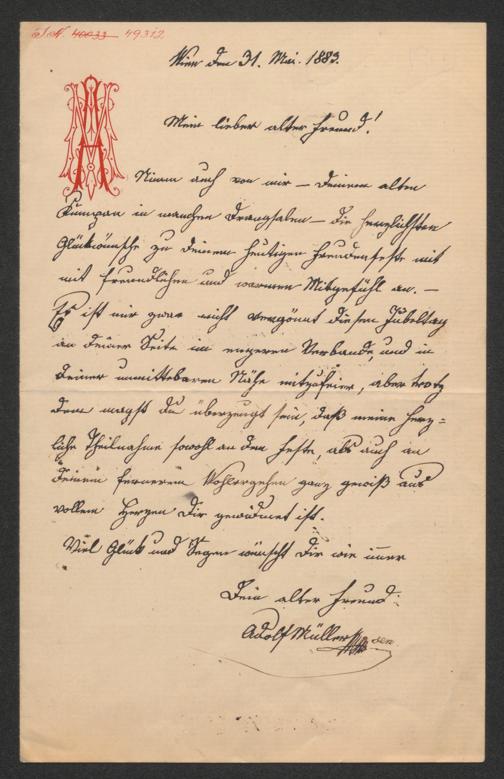 I. N. 40033 49312
Wien den 31. Mai. 1883.
Mein lieber alter Freund!
AM
Nimm auch von mir – Deinem alten
Kumpan in manchen Drangsalen – die herzlichsten
Glückwünsche zu Deinem heutigen Freudenfeste mit
mit freundlichen und warmen Mitgefühl an. –
Es ist mir zwar nicht vergönnt diesen Jubeltag
an Deiner Seite im engeren Verbande, und in
Deiner unmittelbaren Nähe mitzufeiern, aber trotz
dem magst Du überzeugt sein, daß meine herz=
liche Theilnahme sowohl an dem Feste, als auch an
Deinem fernerem Wohlergehen ganz gewiß aus
vollem Herzen Dir gewidmet ist.
Viel Glück und Segen wünscht Dir wie immer
Dein alter Freund:
Adolf Müller sen.